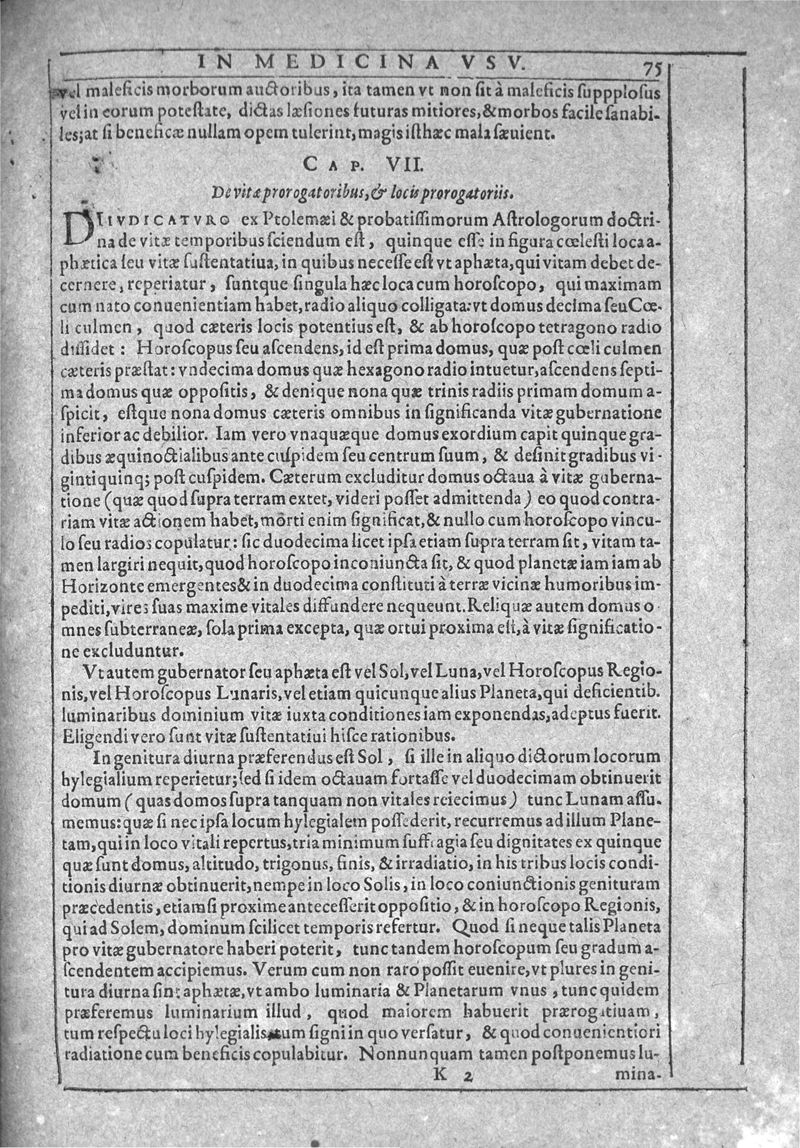 IN MEDICINA VSV. 75
vel maleficis morborum auctoribus, ita tamen vt non sit à maleficis suppplosus
vel in eorum potestate, dictas læsiones futuras mitiores, & morbos facile sanabi-
les; at si beneficæ nullam opem tulerint, magis isthæc mala sæuient.
CAP. VII.
De vitæ prorogatoribus, & locis prorogatoriis.
DIIVDICATVRO ex Ptolemæi & probatissimorum Astrologorum doctri-
na de vitæ temporibus sciendum est, quinque esse in figura cœlesti loca a-
phætica seu vitæ sustentatiua, in quibus necesse est vt aphæta, qui vitam debet de-
cernere, reperiatur, suntque singula hæc loca cum horoscopo, qui maximam
cum nato conuenientiam habet, radio aliquo colligata: vt domus decima seu Cœ-
li culmen, quod cæteris locis potentius est, & ab horoscopo tetragono radio
dissidet: Horoscopus seu ascendens, id est prima domus, quæ post cœli culmen
cæteris præstat: vndecima domus quæ hexagono radio intuetur, ascendens septi-
ma domus quæ oppositis, & denique nona quæ trinis radiis primam domum a-
spicit, estque nona domus cæteris omnibus in significanda vitæ gubernatione
inferior ac debilior. Iam vero vnaquæque domus exordium capit quinque gra-
dibus æquinoctialibus ante cuspidem seu centrum suum, & definit gradibus vi-
gintiquinq; post cuspidem. Cæterum excluditur domus octaua à vitæ guberna-
tione (quæ quod supra terram extet, videri posset admittenda) eo quod contra-
riam vitæ actionem habet, morti enim significat, & nullo cum horoscopo vincu-
lo seu radios copulatur: sic duodecima licet ipsa etiam supra terram sit, vitam ta-
men largiri nequit, quod horoscopo inconiuncta sit, & quod planetæ iam iam ab
Horizonte emergentes & in duodecima constituti à terræ vicinæ humoribus im-
pediti, vires suas maxime vitales diffundere nequeunt. Reliquæ autem domus o-
mnes subterraneæ, sola prima excepta, quæ ortui proxima est, à vitæ significatio-
ne excluduntur.
Vt autem gubernator seu aphæta est vel Sol, vel Luna, vel Horoscopus Regio-
nis, vel Horoscopus Lunaris, vel etiam quicunque alius Planeta, qui deficientib.
luminaribus dominium vitæ iuxta conditiones iam exponendas, adeptus fuerit.
Eligendi vero sunt vitæ sustentatiui hisce rationibus.
In genitura diurna præferendus est Sol, si ille in aliquo dictorum locorum
hylegialium reperietur; sed si idem octauam fortasse vel duodecimam obtinuerit
domum (quas domos supra tanquam non vitales reiecimus) tunc Lunam assu-
memus: quæ si nec ipsa locum hylegialem possederit, recurremus ad illum Plane-
tam, qui in loco vitali repertus, tria minimum suffragia seu dignitates ex quinque
quæ sunt domus, altitudo, trigonus, finis, & irradiatio, in his tribus locis condi-
tionis diurnæ obtinuerit, nempe in loco Solis, in loco coniunctionis genituram
præcedentis, etiamsi proxime antecesserit oppositio, & in horoscopo Regionis,
qui ad Solem, dominum scilicet temporis refertur. Quod si neque talis Planeta
pro vitæ gubernatore haberi poterit, tunc tandem horoscopum seu gradum a-
scendentem accipiemus. Verum cum non raro possit euenire, vt plures in geni-
tura diurna sint aphætæ, vt ambo luminaria & Planetarum vnus, tunc quidem
præferemus luminarium illud, quod maiorem habuerit prærogatiuam,
tum respectu loci hylegialis, tum signi in quo versatur, & quod conuenientiori
radiatione cum beneficis copulabitur. Nonnunquam tamen postponemus lu-
K 2 mina-